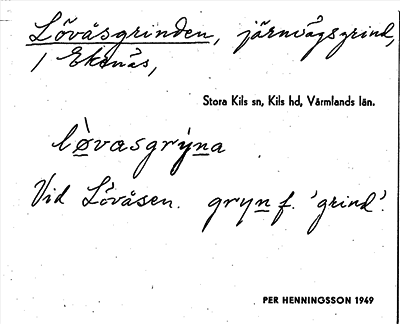 Lövåsgrinden, järnvägsgrind,
/ Ekenäs,
Stora Kils sn, Kils hd, Värmlands län.
lø̀vasgrýna
Vid Lövåsen. gryn f. 'grind'.
PER HENNINGSSON 1949